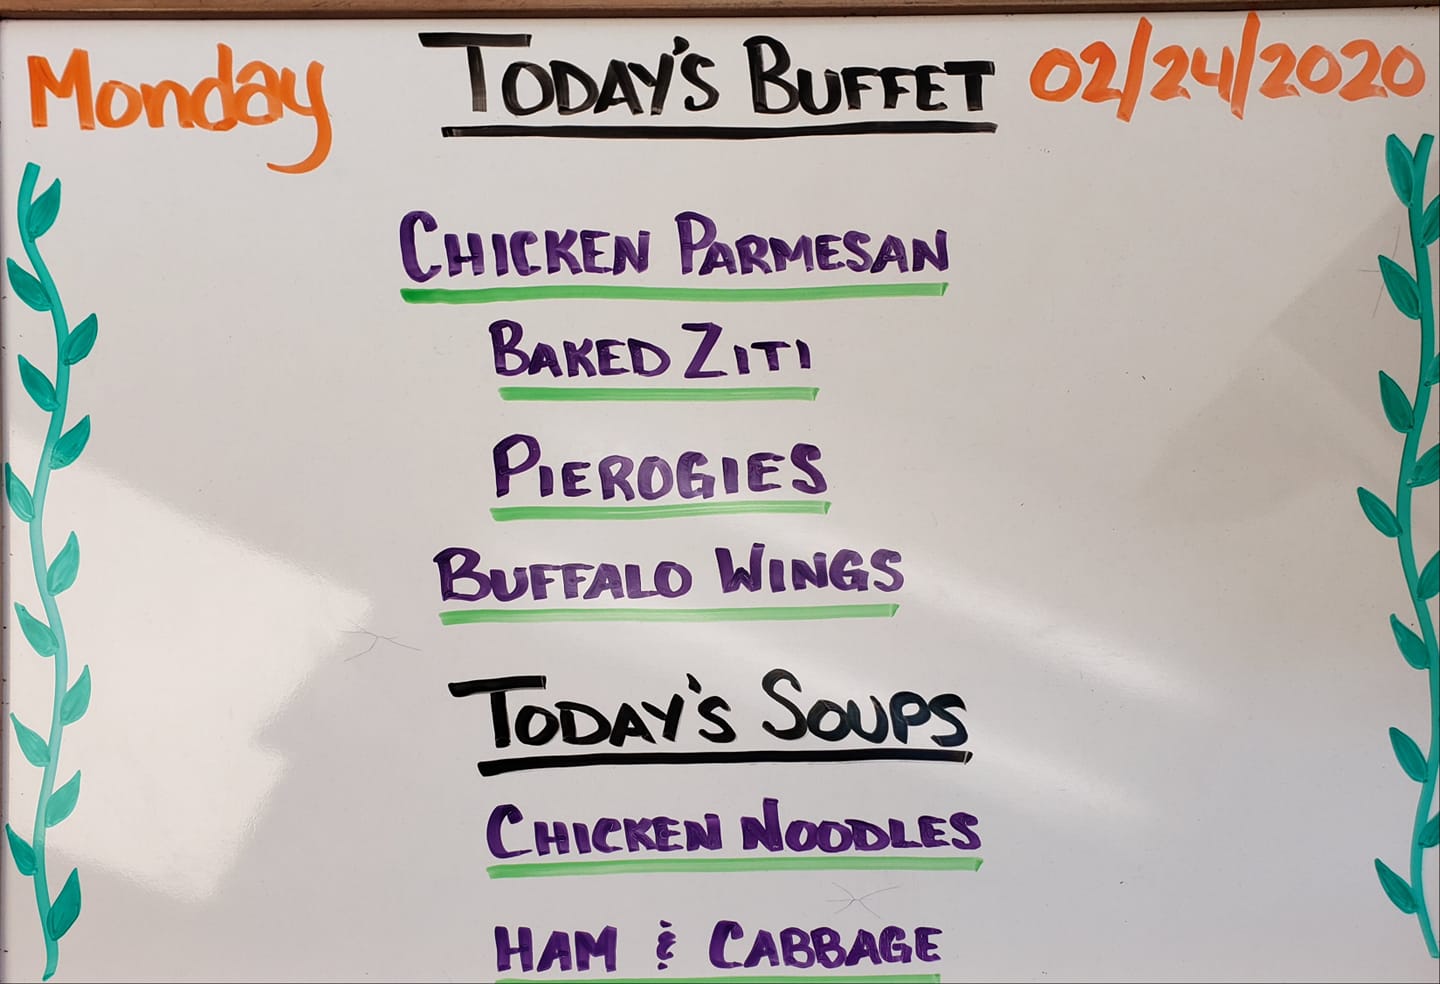 Monday TODAY'S BUFFET 02/24/2020
CHICKEN PARMESAN
BAKED ZITI
PIEROGIES
BUFFALO WINGS
TODAY'S SOUPS
CHICKEN NOODLES
HAM & CABBAGE